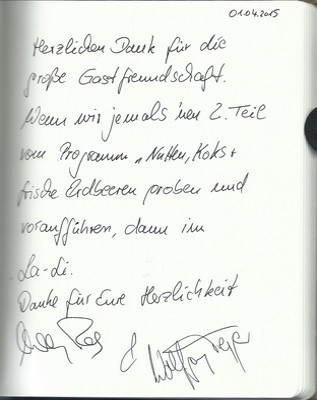 01.04.2015
Herzlichen Dank für die
große Gastfreundschaft.
Wenn wir jemals 'nen 2. Teil
vom Programm „Nutten, Koks +
frische Erdbeeren proben und
voraufführen, dann im
La-Li.
Danke für Eure Herzlichkeit
&
Wolfgang